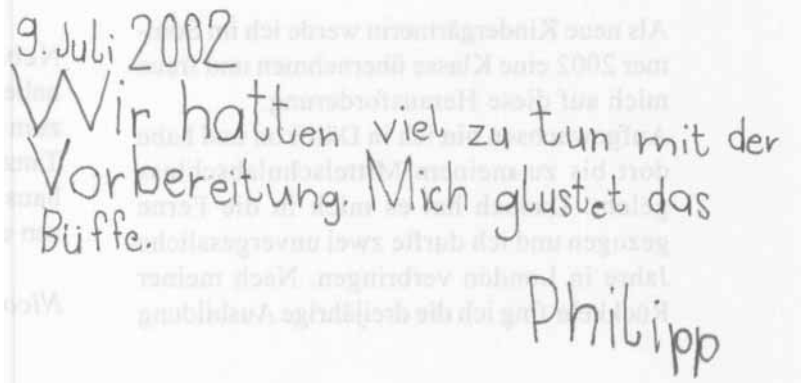 9. Juli 2002
Wir hatten viel zu tun mit der
Vorbereitung. Mich glustet das
Büffe.
Philipp